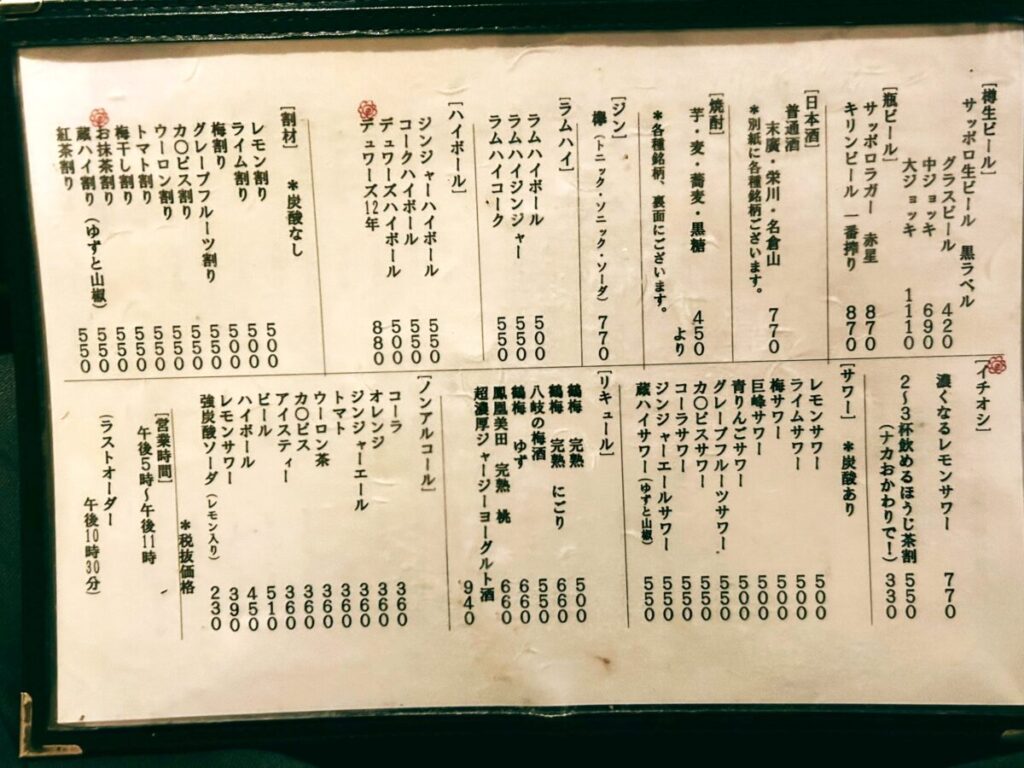 [樽生ビール]
サッポロ生ビール 黒ラベル
グラスビール 420
中ジョッキ 690
大ジョッキ 1110
[瓶ビール]
サッポロラガー 赤星 870
キリンビール 一番搾り 870
[日本酒]
普通酒
末廣・栄川・名倉山 770
*別紙に各種銘柄ございます。
[焼酎]
芋・麦・蕎麦・黒糖 450より
*各種銘柄、裏面にございます。
[ジン]
欅(トニック・ソニック・ソーダ) 770
[ラムハイ]
ラムハイボール 500
ラムハイジンジャー 550
ラムハイコーク 550
[ハイボール]
ジンジャーハイボール 550
コークハイボール 550
デュワーズハイボール 500
デュワーズ12年 880
[割材] *炭酸なし
レモン割り 500
ライム割り 500
梅割り 500
グレープフルーツ割り 550
カ〇ピス割り 550
ウーロン割り 550
トマト割り 550
梅干し割り 550
お抹茶割り 550
蔵ハイ割り(ゆずと山椒) 550
紅茶割り 550
[イチオシ]
濃くなるレモンサワー 770
2〜3杯飲めるほうじ茶割 550
(ナカおかわりで!) 330
[サワー] *炭酸あり
レモンサワー 500
ライムサワー 500
梅サワー 500
巨峰サワー 500
青りんごサワー 500
グレープフルーツサワー 550
カ〇ピスサワー 550
コーラサワー 550
ジンジャーエールサワー 550
蔵ハイサワー(ゆずと山椒) 550
[リキュール]
鶴梅 完熟 500
鶴梅 完熟 にごり 660
八岐の梅酒 550
鶴梅 ゆず 660
鳳凰美田 完熟 桃 660
超濃厚ジャージーヨーグルト酒 940
[ノンアルコール]
コーラ 360
オレンジ 360
ジンジャーエール 360
トマト 360
ウーロン茶 360
カ〇ピス 360
アイスティー 360
ビール 510
ハイボール 450
レモンサワー 390
強炭酸ソーダ(レモン入り) 230
*税抜価格
[営業時間]
午後5時〜午後11時
(ラストオーダー 午後10時30分)